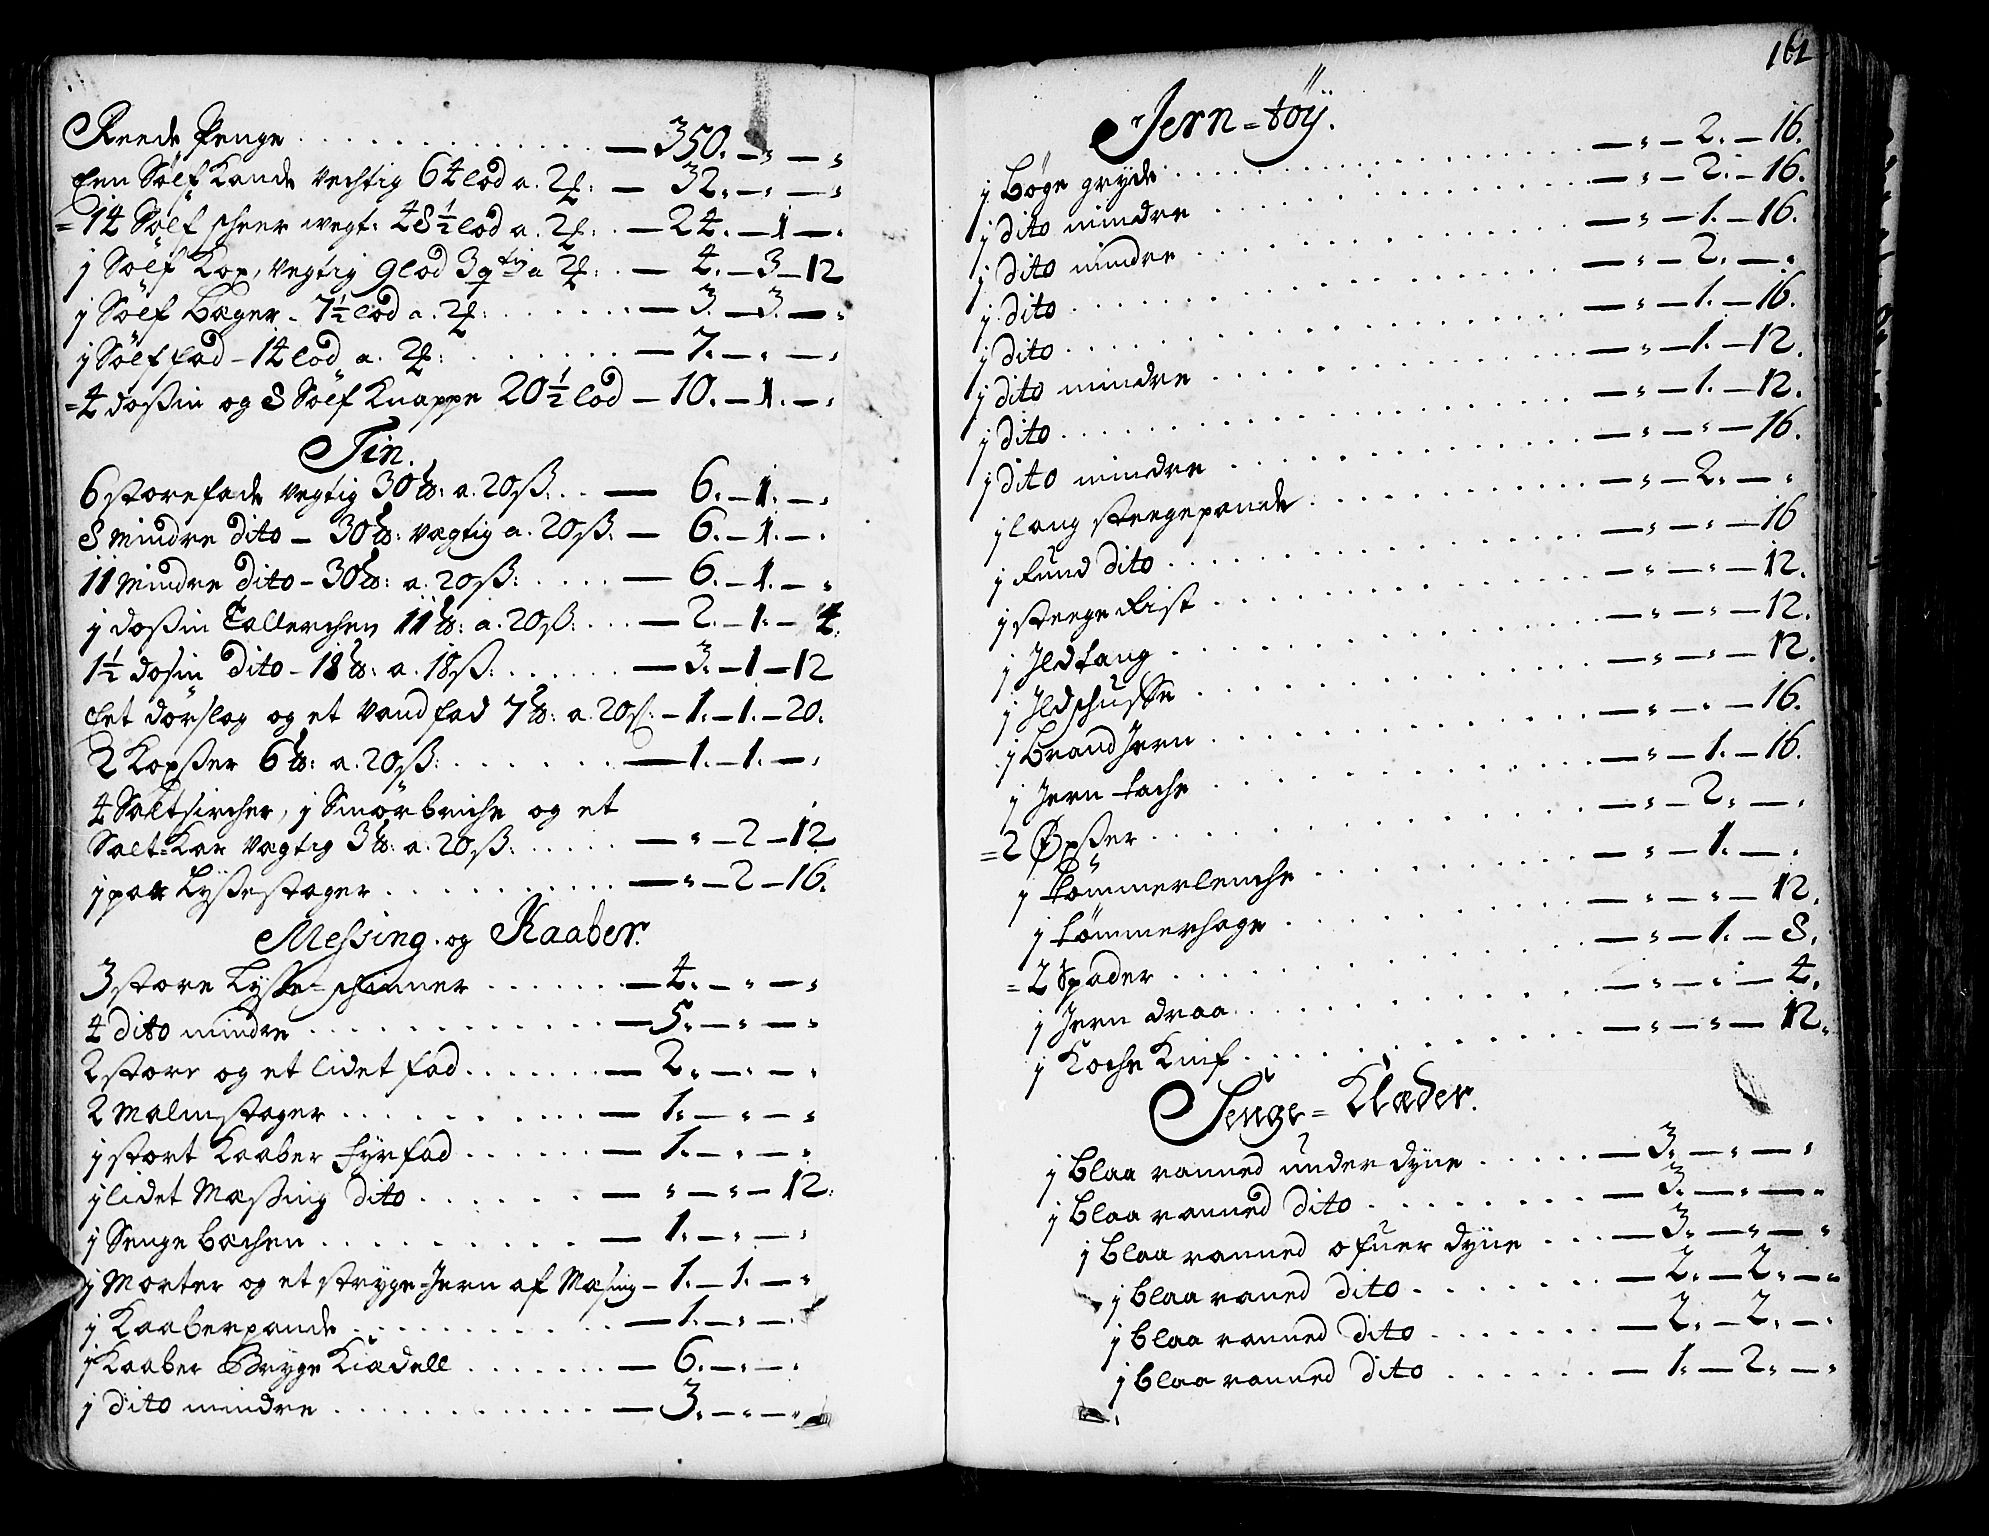 Reede Penge — 350. — " — "
Een Sølf Kande Vechtig 64 lod a. 2 — 32. — " — "
= 14 Sølf scheer wegt: 48½ lod a. 2 — 24. — 1 — "
j Sølf Kop, Vegtig 9 lod 3 qtn a — 4. — 3 — 12
j Sølf Bæger - 7½ lod a. — 3. — 3. — "
j Sølf fad - 14 lod a. — 7. — " — "
= 4 dossin og 8 Sølf Knappe 20½ lod — 10. — 1. — "
Tin.
6 store fade Vegtig 30 ℔: a. 20 ß: — 6. — 1. — "
8 mindre dito — 30 ℔: Vægtig a. 20 ß: — 6. — 1. — "
11 Mindre dito - 30 ℔: a. 20 ß: — 6. — 1. — "
j dossin Tallerchen 11 ℔: a. 20 ß: — 2. — 1. — 4.
1½ dosin dito - 18 ℔: a. 18 ß: — 3. — 1 — 12
Eet dørslag og et Vand fad 7 ℔: a. 20 ß: — 1. — 1. — 20.
2 6 ℔: a. 20 ß: — 1. — 1. — "
4 , j Smør og et
Salt-Kar Vægtig 3 ℔: a. 20 ß: — " — 2 — 12
j par Lyssestager — " — 2 — 16.
Messing og Kaaber.
3 store Lysse- — 4. — " — "
4 dito mindre — 5. — " — "
2 store og et lidet fad — 2. — " — "
2 Malmstager — 1. — " — "
j stort Kaaber fyrfad — 1. — " — "
j lidet Messing dito — " — " — 12.
j Senge bechen — 1. — " — "
j Morter og et stryge-Jern af Mesing — 1. — 1. — "
j Kaaberpande — 1. — " — "
j Kaaber Brygge Kiedell — 6. — " — "
j dito mindre — 3. — " — "
161
Jern-tøÿ.
j gryde — " — 2. — 16.
j dito mindre — " — 2. — 16.
j dito mindre — " — 1. — 16.
j dito — " — 2. — "
j dito — " — 1. — 16.
j dito mindre — " — 1. — 12.
j dito — " — 1. — 12.
j dito mindre — " — " — 16.
j lang steegepande — " — 2. — "
j Rund dito — " — " — 16
j steege Rist — " — " — 12.
j Ildtang — " — " — 12.
j Ildschuffe — " — " — 12.
j brandJern — " — " — 16.
j Jern — " — 1. — 16.
= 2 Øxser — " — 2. — "
j tømmerlenche — " — 1. — "
j tømmerhage — " — " — 12.
= 2 Spader — " — 1. — 8.
j Jern draa — " — " — 4.
j Koche Knif — " — " — 12.
Senge-Klæder.
j blaa ranned under dyne — 3. — " — "
j blaa ranned dito — 3. — " — "
j blaa ranned ofuer dyne — 3. — " — "
j blaa raned dito — 2. — 2. — "
j blaa ranned dito — 2. — 2. — "
j blaa ranned dito — 1. — 2. — "